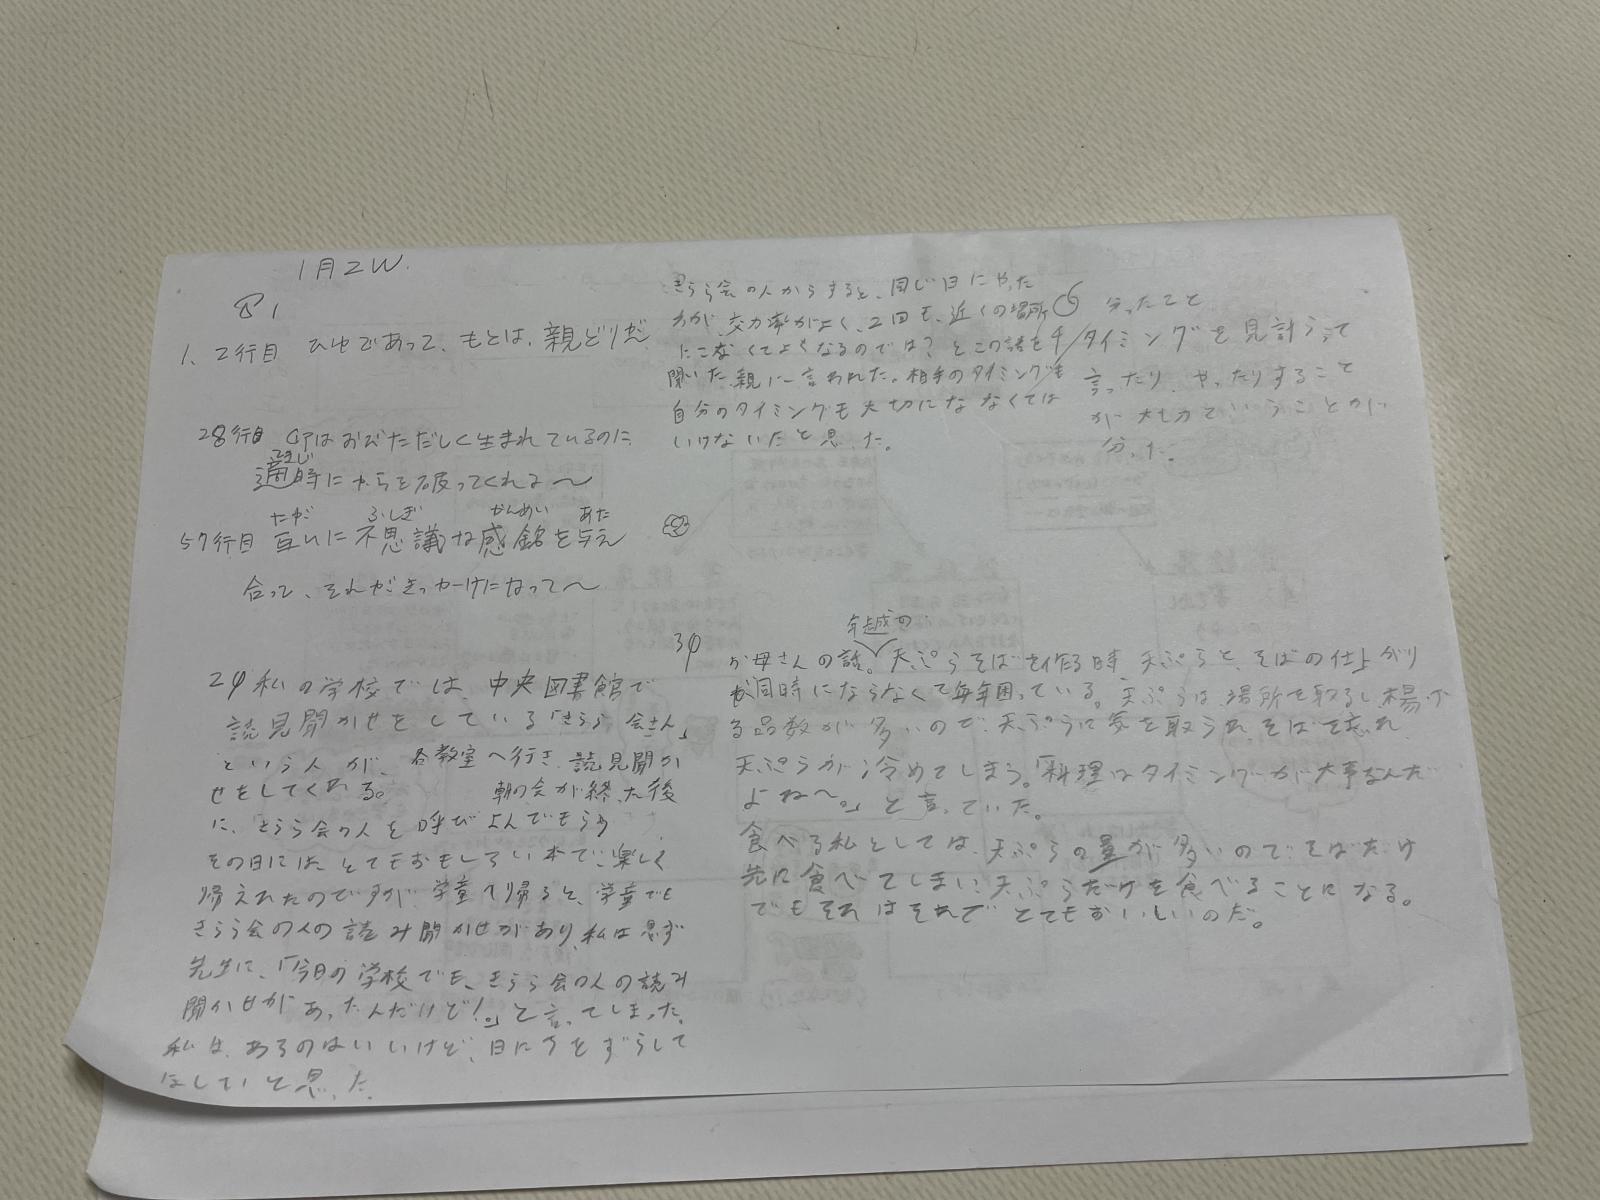 1月2W.
1
1、2行目 ひゆであって、もとは、親どりが
28行目 卵はおびただしく生まれているのに
適時にからを破ってくれる〜
57行目 互いに不思議な感銘を与え
たが ふしぎ かんめい あた
合って、それがきっかけになって〜
2 私の学校では、中央図書館で
読見聞かせをしている「きらら会さん」
という人が、各教室へ行き、読見聞か
せをしてくれる。 朝の会が終った後
に、きらら会の人を呼びよんでもらう
その日には、とてもおもしろい本で、楽しく
帰えれたのですが、学童へ帰ると、学童でも
きらら会の人の読み聞かせがあり、私は思ず
先生に、「今日の学校でも、きらら会の人の読み
聞かせがあったんだけど!。」と言ってしまった。
私は、あるのはいいけど、日にちをずらして
ほしいと思った
きらら会の人からすると、同じ日にやった
方が、交力率がよく、2回も、近くの場所
にこなくてよくなるのでは?とこの話を
聞いた親に言われた。相手のタイミングも
自分のタイミングも大切にな なくては
いけないだと思った。
分ったこと
タイミングを見計らって
言ったり、やったりすること
が大切ということが
分った。
3
年越の
お母さんの話。天ぷらそばを作る時 天ぷらと、そばの仕上がり
が同時にならなくて毎年困っている。天ぷらは、場所を取るし、揚げ
る品数が多いので、天ぷらに気を取られ、そばを忘れ、
天ぷらが冷めてしまう。「料理はタイミングが大事なんだ
よね〜。」と言っていた。
食べる私としては、天ぷらの量が多いので、そばだけ
先に食べてしまい、天ぷらだけを食べることになる。
でもそれはそれで とてもおいしいのだ。